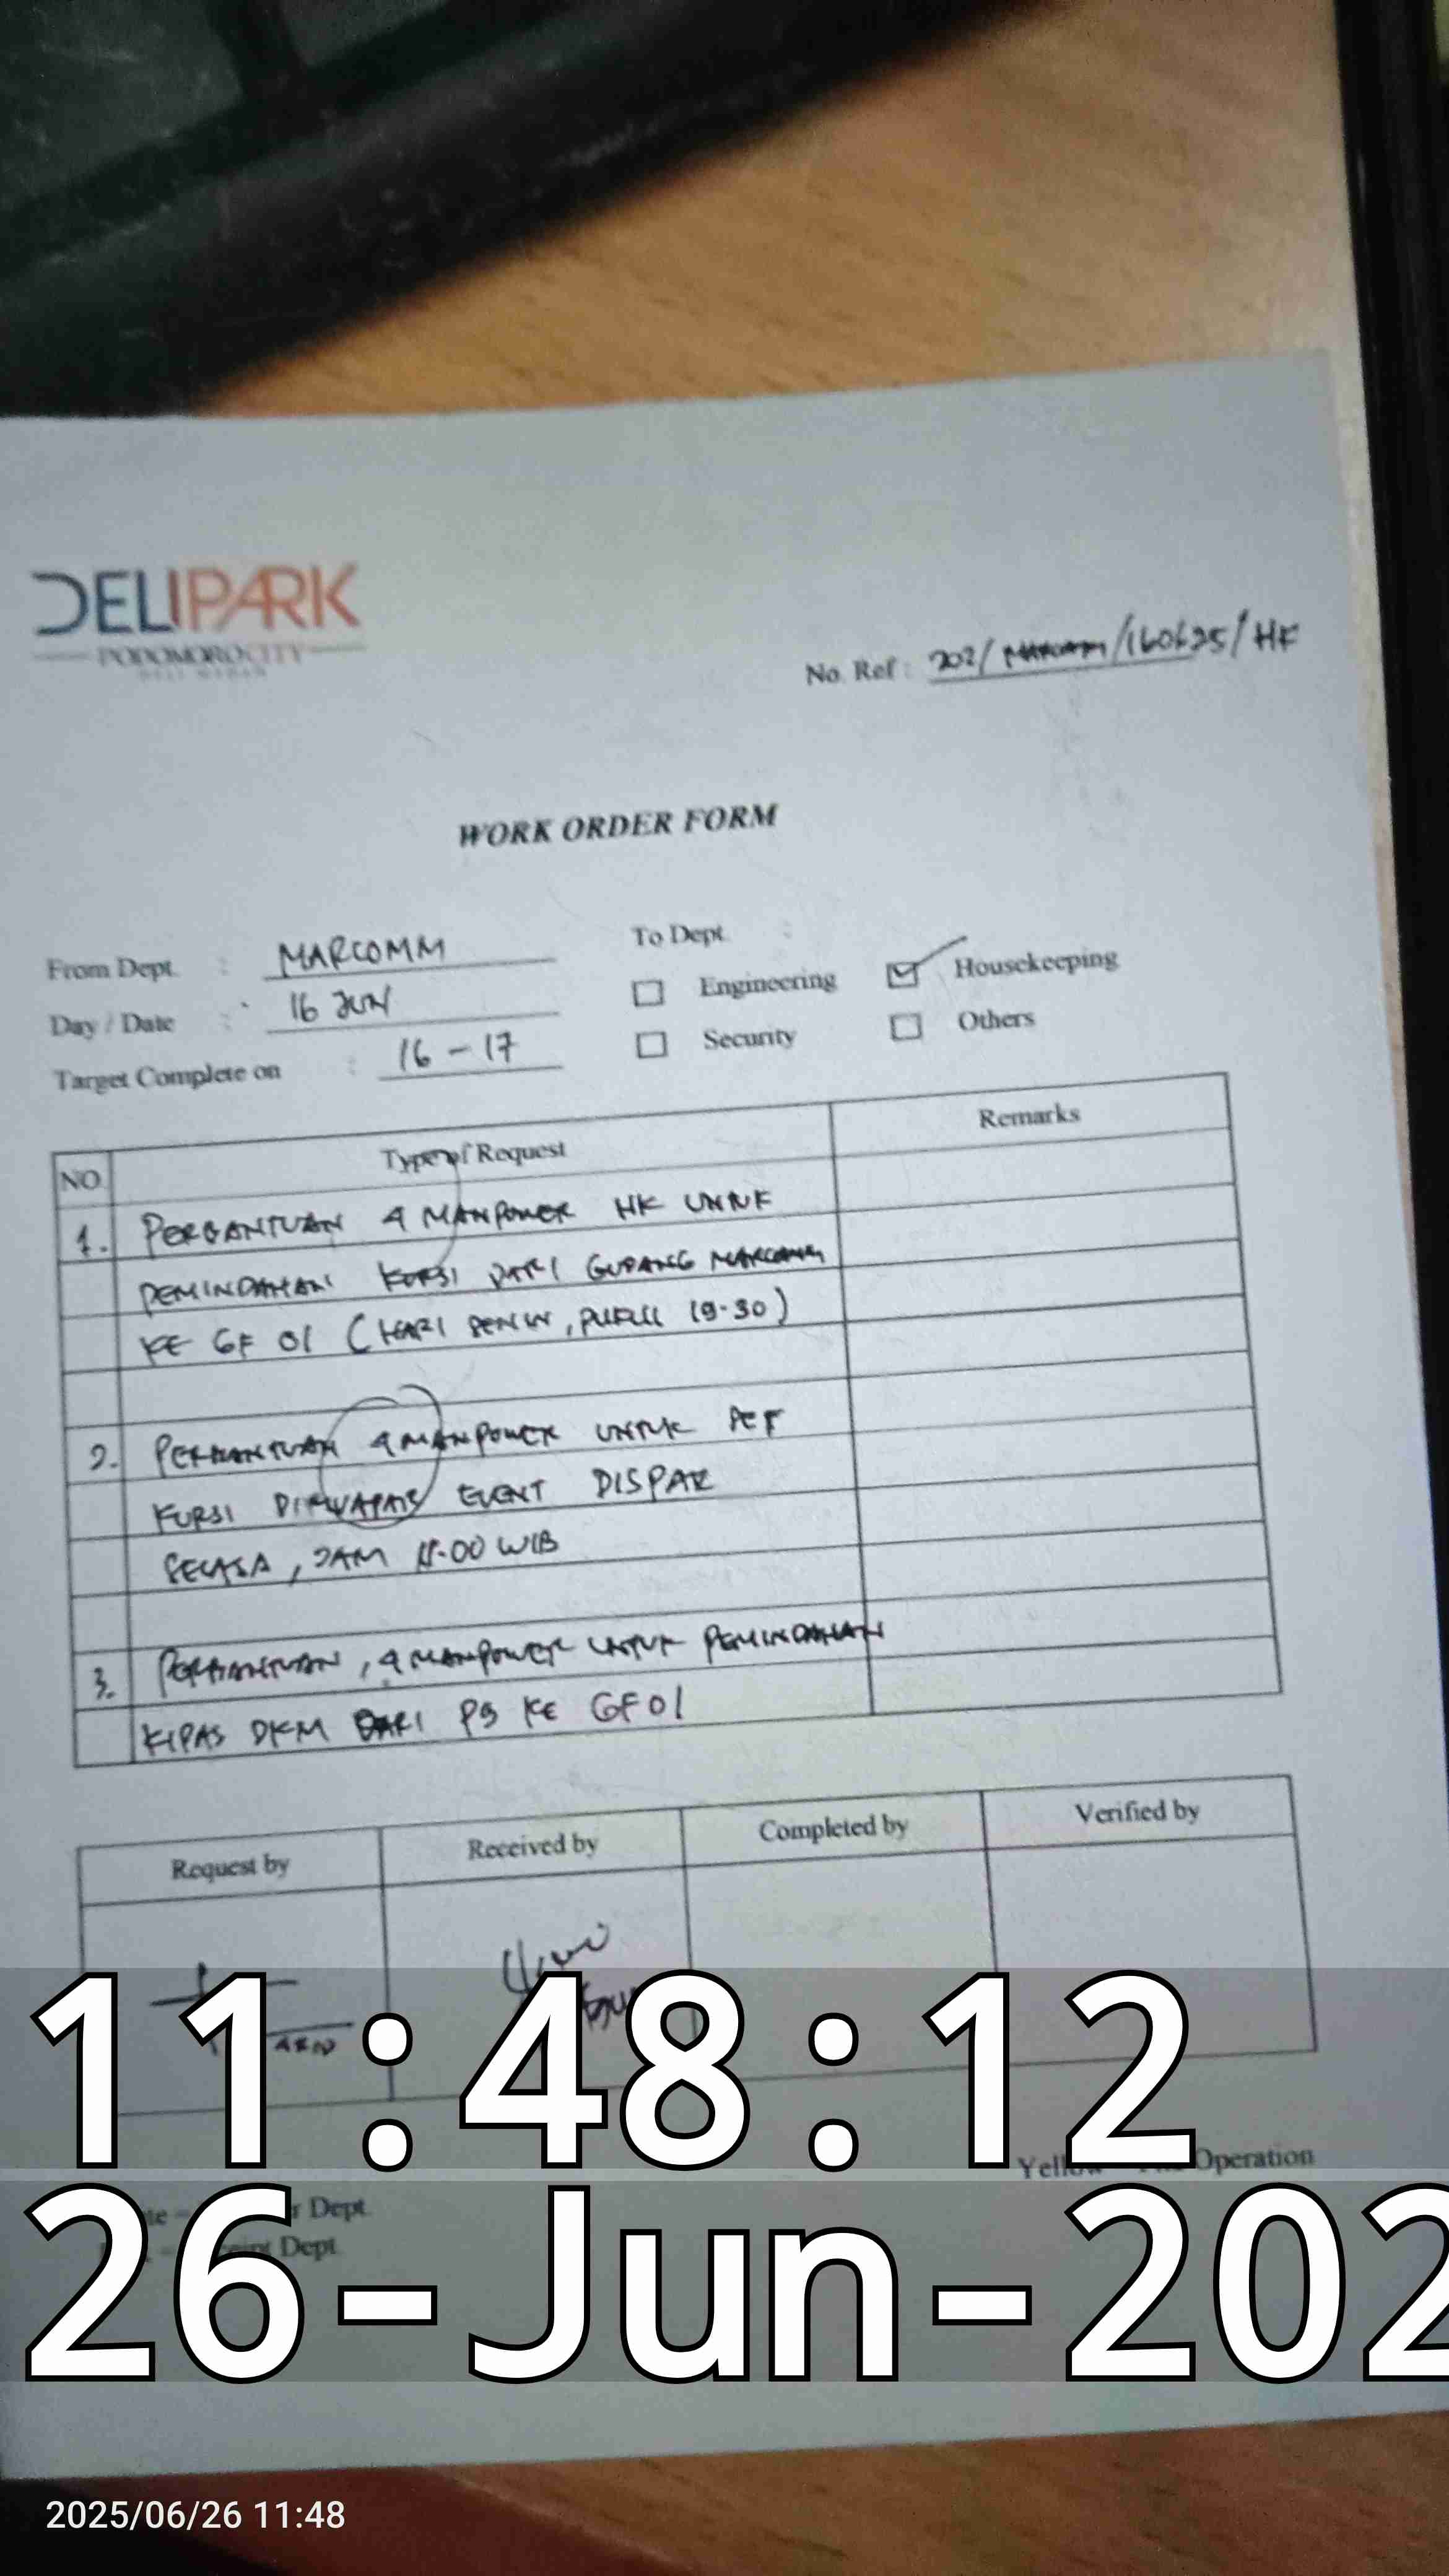 DELIPARK
PODOMORO CITY
DELI MEDAN
No. Ref : 202/MARCOMM/160625/HK
WORK ORDER FORM
From Dept : MARCOMM
To Dept :
Day / Date : 16 JUN
Engineering
Housekeeping
Target Complete on : 16 - 17
Security
Others
NO. Type of Request Remarks
1. PERBANTUAN 4 MANPOWER HK UNTUK
PEMINDAHAN KURSI DARI GUDANG MARCOMM
KE GF 01 (HARI SENIN, PUKUL 19.30)
2. PERBANTUAN 4 MANPOWER UNTUK
KURSI EVENT DISPAR
SELASA, JAM WIB
3. PERBANTUAN, 4 MANPOWER UNTUK PEMINDAHAN
KIPAS DKM DARI P9 KE GF 01
Request by Received by Completed by Verified by
11:48:12
Operation
26-Jun-202
Dept
Dept
2025/06/26 11:48